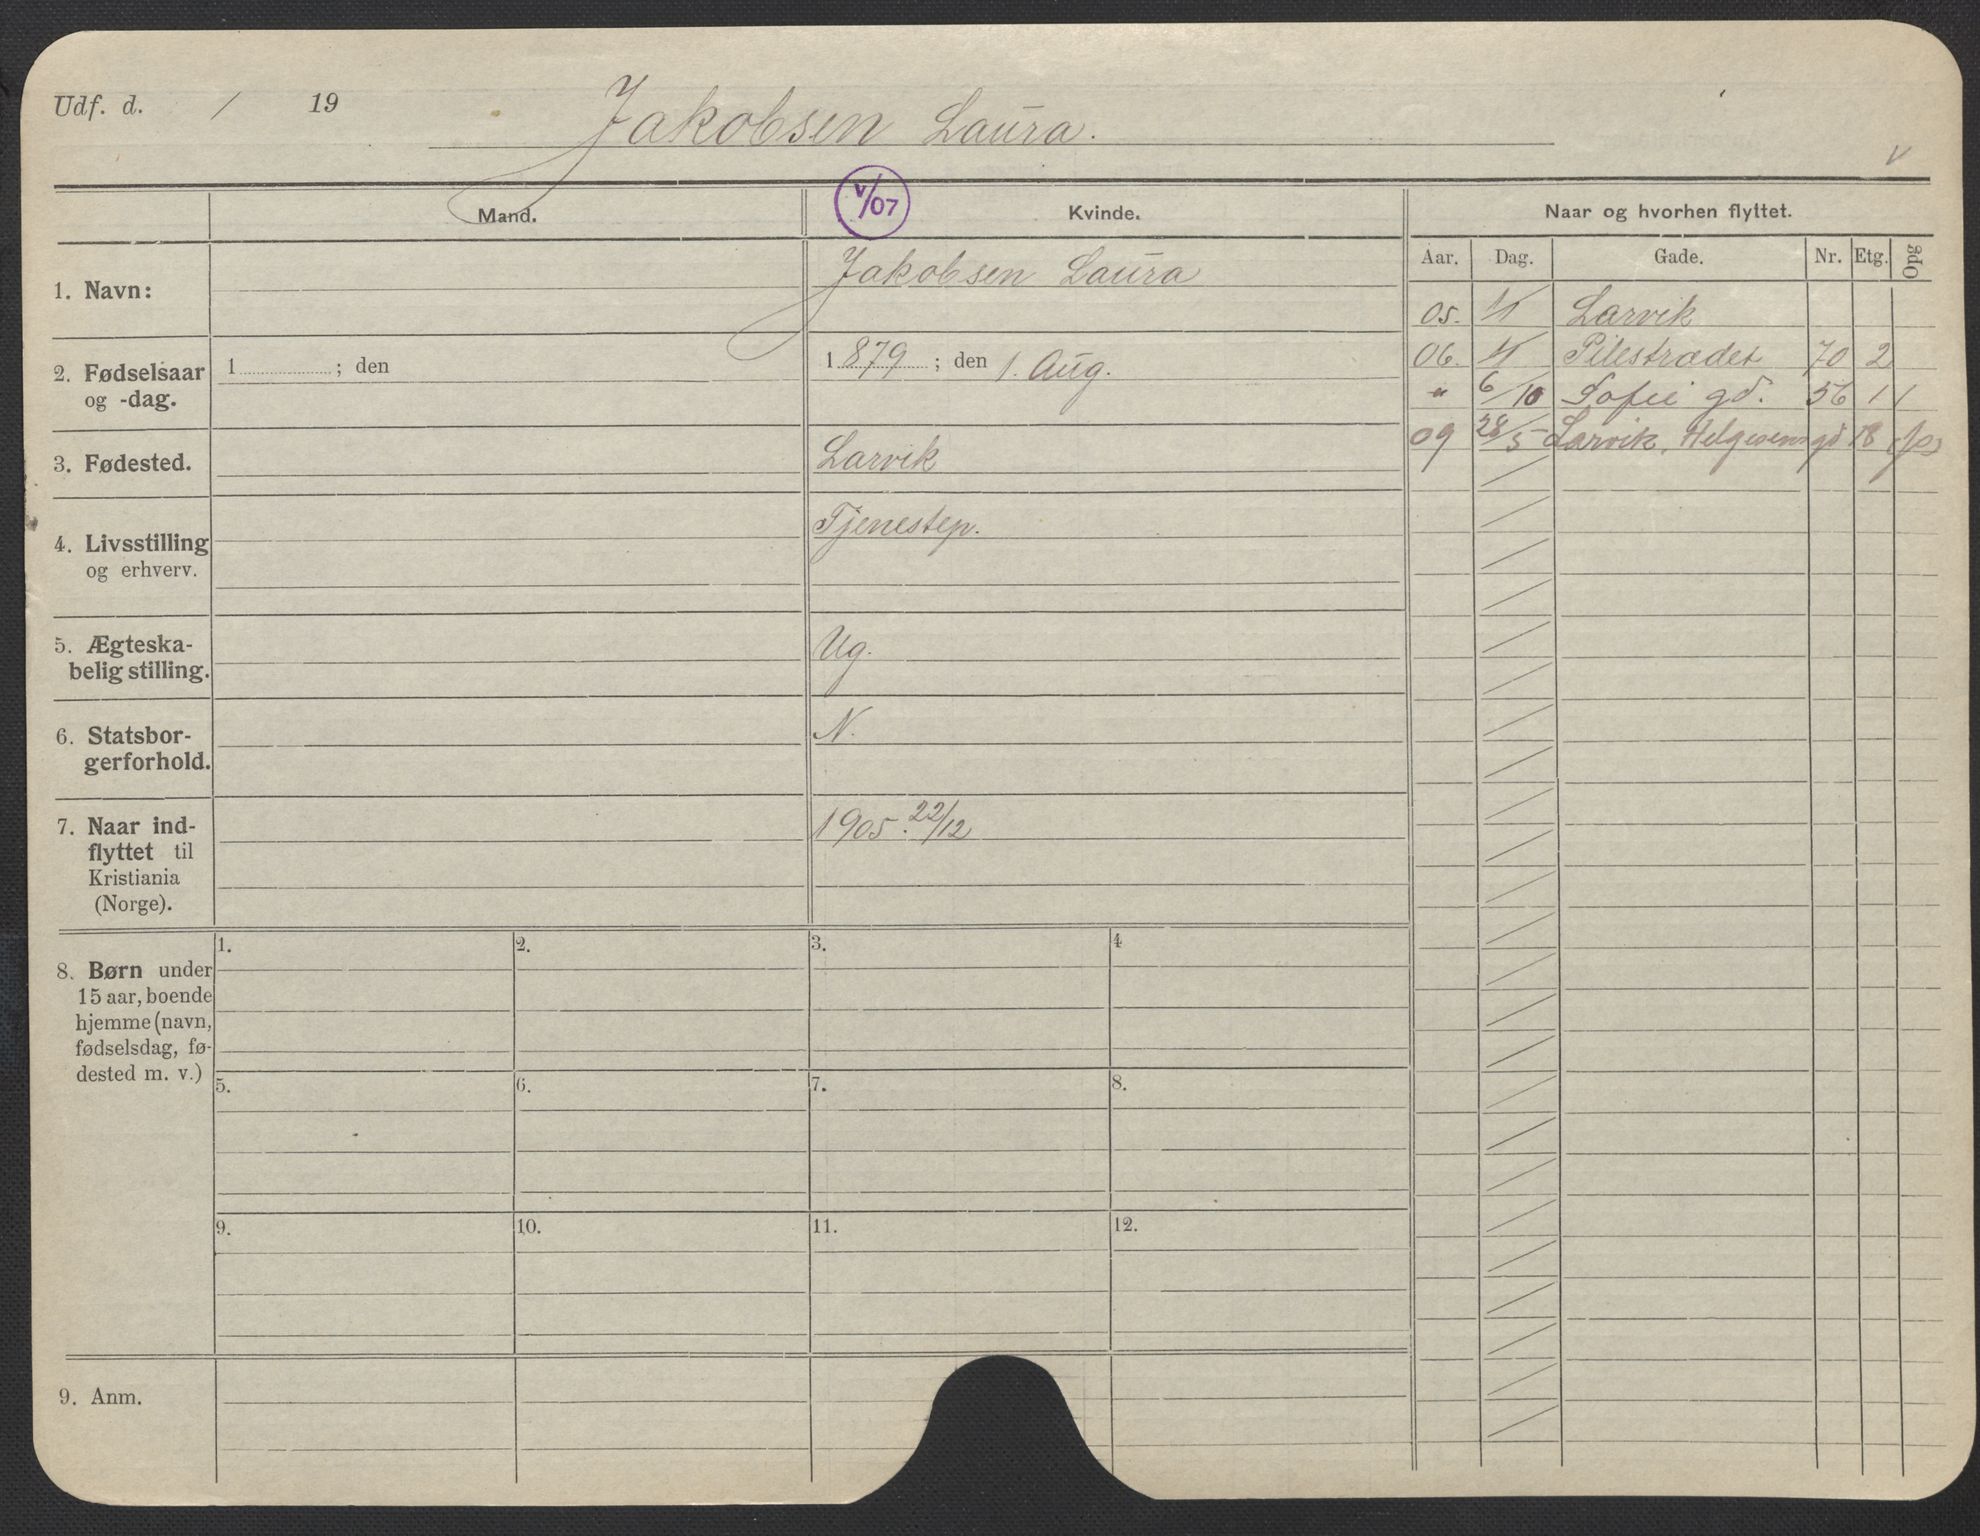 Udf. d. / 19
Jakobsen Laura.
v
Mand.
v/07
Kvinde.
Naar og hvorhen flyttet.
Aar. Dag. Gade. Nr. Etg. Opg
1. Navn:
Jakobsen Laura
2. Fødselsaar
og -dag.
1 ; den
1879 ; den 1. Aug.
3. Fødested.
Larvik
4. Livsstilling
og erhverv.
Tjenestep.
5. Ægteska-
belig stilling.
Ug.
6. Statsbor-
gerforhold.
N.
7. Naar ind-
flyttet til
Kristiania
(Norge).
1905. 22/12
05. 1/1 Larvik
06. 1/1 Pilestrædet 70 2
" 6/10 Sofie gd. 56 11
09 28/5 Larvik, Helgesens gd 18
8. Børn under
15 aar, boende
hjemme (navn,
fødselsdag, fø-
dested m. v.)
1. 2. 3. 4
5. 6. 7. 8.
9. 10. 11. 12.
9. Anm.